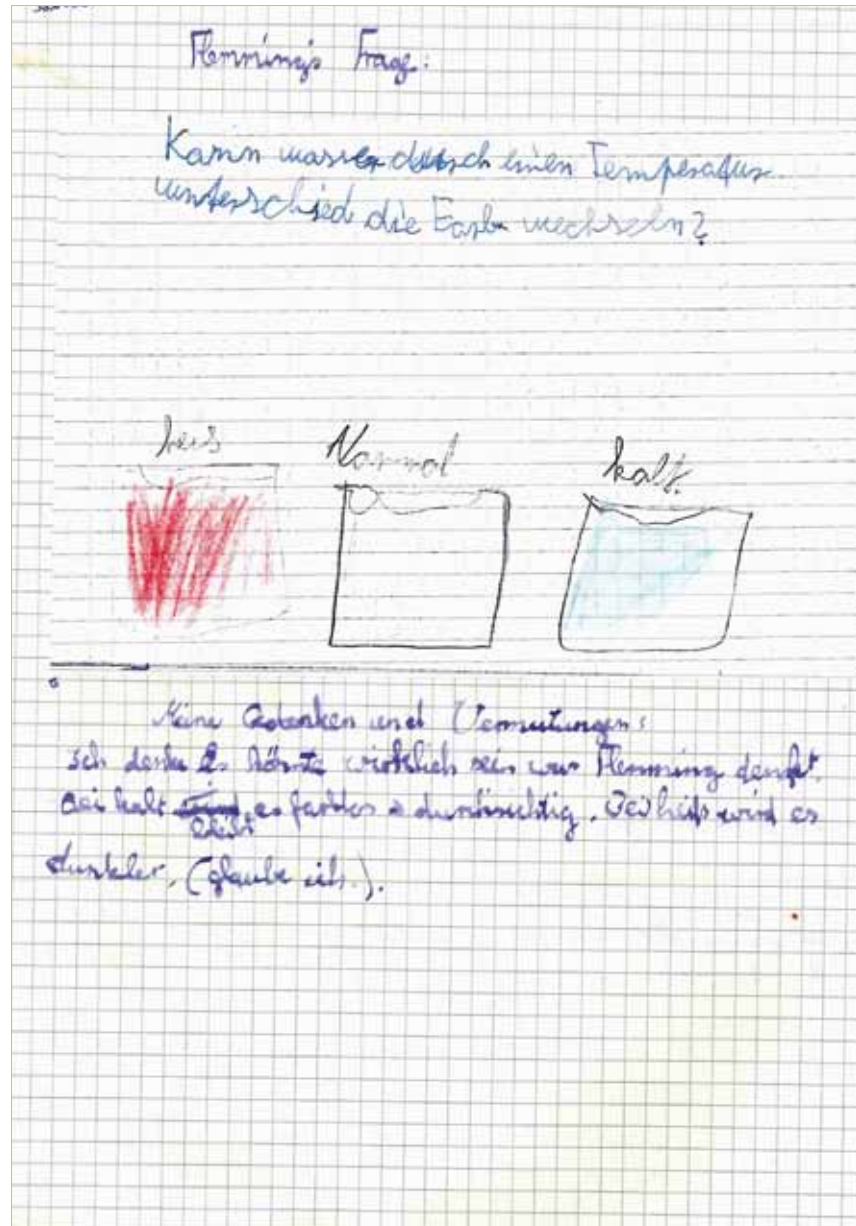 Flemming's Frage:
Kann wasser durch einen Temperatur-
unterschied die Farbe wechseln?
heis Normal kalt.
Meine Gedanken und Vermutungen:
Ich denke es könnte wirklich sein was Flemming denkt.
Bei kalt bleibt es farblos = durchsichtig. Bei heiß wird es
dunkler, (glaube ich.).